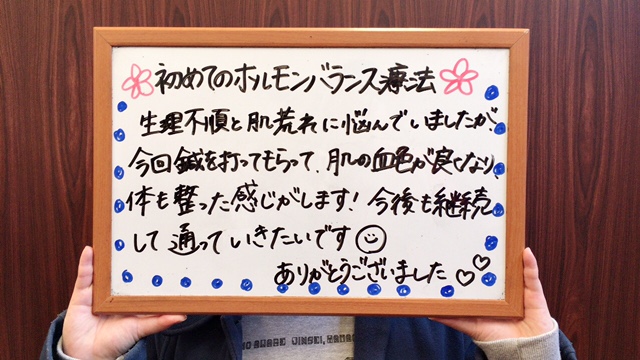 初めてのホルモンバランス療法
生理不順と肌荒れに悩んでいましたが、
今回鍼を打ってもらって、肌の血色が良くなり、
体も整った感じがします！今後も継続
して通っていきたいです
ありがとうございました
JINSEI,